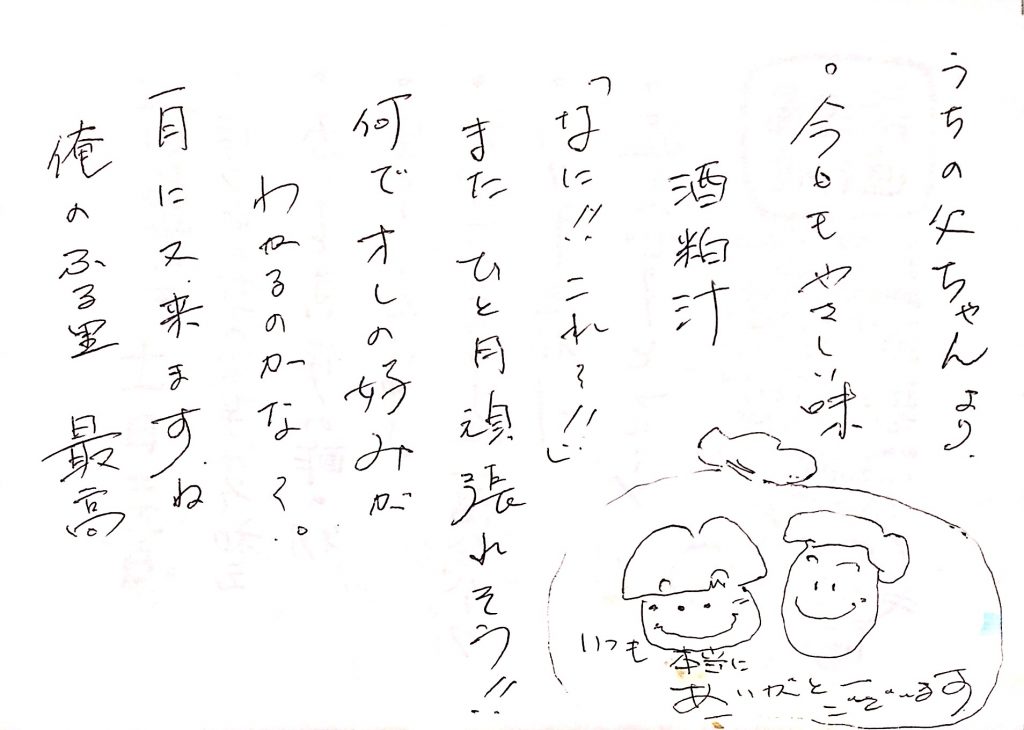 うちの父ちゃんより
。今日もやさしい味
酒粕汁
「なに!!これ〜!!」
またひと月頑張れそう!!
何でオレの好みが
わかるのかな〜。
一月に又来ますね
俺のふる里 最高
いつも
本当に
ありがとうございます